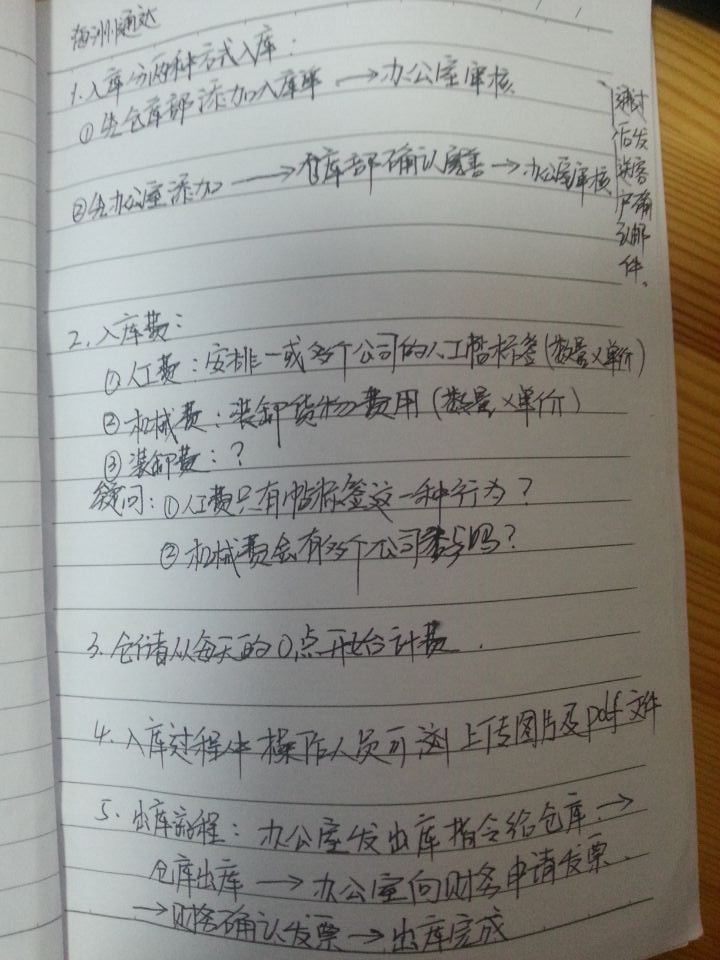 海洲通达
1.入库分两种方式入库:
①先仓库部添加入库单→办公室审核
②先办公室添加→仓库部确认完善→办公室审核
通过
后发
送客
户确
认邮
件。
2.入库费:
①人工费:安排一或多个公司的人工帖标签(数量×单价)
②机械费:装卸货物费用(数量×单价)
③装卸费:?
疑问:①人工费只有帖标签这一种行为?
②机械费会有多个公司参与吗?
3.仓储从每天的0点开始计费.
4.入库过程中操作人员可浏上传图片及pdf文件
5.出库流程:办公室发出库指令给仓库→
仓库出库→办公室向财务申请发票
→财务确认发票→出库完成